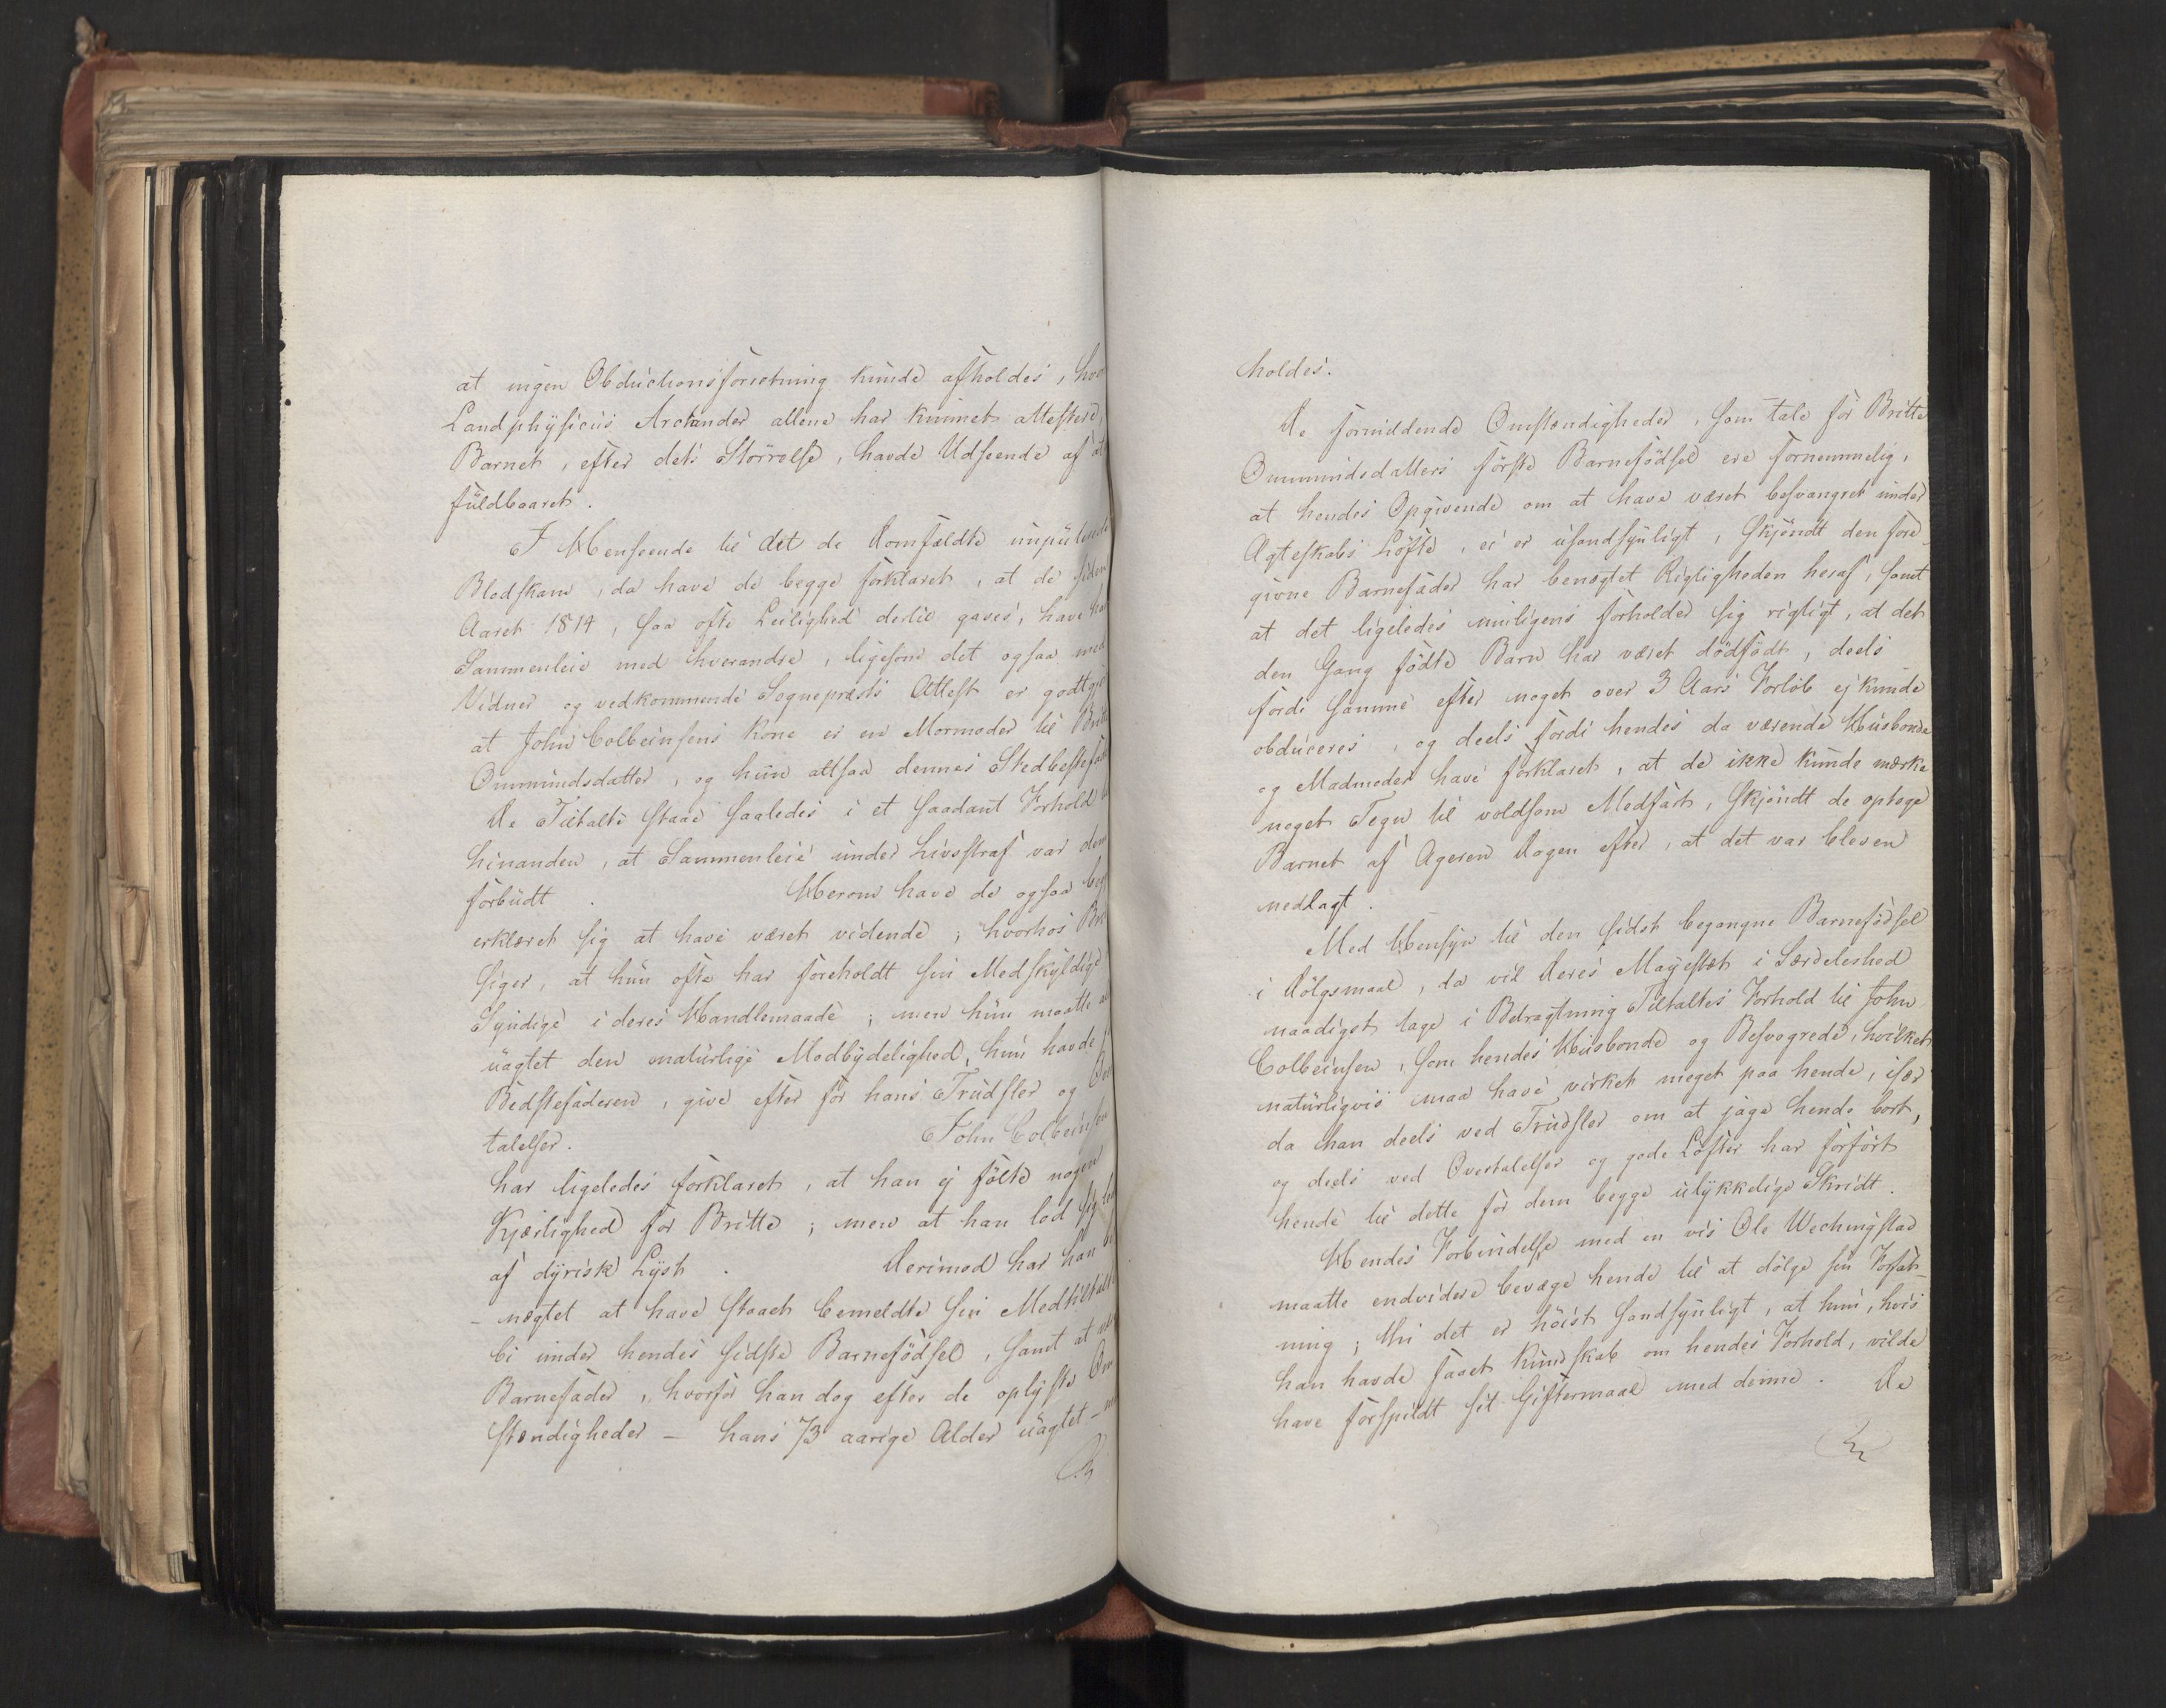 at ingen Obductionsforretning kunde afholdes,
Landphysicus Arctander allene har kunnet attestere,
Barnet, efter dets Størrelse, havde Udseende af at
fuldbaaret.
I Henseende til det de Domfældte
Blodskam, da have de begge forklaret, at de siden
Aaret 1814, saa ofte Leilighed dertil gaves, have
Sammenleie med hverandre, ligesom det ogsaa med
Vidner og vedkommende Sognepræsts Attest er
at John Colbeinsens Kone er en Mormoder til
Ommundsdatter, og hun altsaa dennes
De Tiltalte staae saaledes i et saadant Forhold
hinanden, at Sammenleie under Livsstraf var dem
forbudt. Herom have de ogsaa
erklæret sig at have været vidende; hvorhos
siger, at hun ofte har foreholdt sin Medskyldige
Syndige i deres Handlemaade; men hun maatte
uagtet den naturlige Modbydelighed, hun havde
Bedstefaderen, give efter for hans Trudsler og
talelser. John Colbeinsen
har ligeledes forklaret, at han ej følte nogen
Kjærlighed for Britte; men at han lod sig
af dyrisk Lyst. Derimod har han
-nægtet at have staaet bemeldte sin
bi under hendes sidste Barnefødsel, samt at
Barnefader, hvorfor han dog efter de oplyste
stændigheder – hans 73 aarige Alder uagtet –
holdes.
De formildende Omstændigheder, som tale for Britte
Ommundsdatters første Barnefødsel ere fornemmelig,
at hendes Opgivende om at have været besvangret under
Ægteskabs Løfte, ei er usandsynligt, skjøndt den fore-
givne Barnefader har benægtet Rigtigheden heraf, samt
at det ligeledes muligens forholder sig rigtigt, at det
den Gang fødte Barn har været dødfødt, deels
fordi samme efter noget over 3 Aars Forløb ej kunde
obduceres, og deels fordi hendes da værende Husbonde
og Madmoder have forklaret, at de ikke kunde mærke
noget Tegn til voldsom Medfart, skjøndt de optoge
Barnet af Ageren Dagen efter, at det var bleven
nedlagt.
Med Hensyn til den sidst begangne Barnefødsel
i Dølgsmaal, da vil Deres Majestæt i Særdeleshed
naadigst tage i Betragtning Tiltaltes Forhold til John
Colbeinsen, som hendes Husbonde og Besvogrede, hvilket
naturligvis maa have virket meget paa hende, især
da han deels ved Trudsler om at jage hende bort,
og deels ved Overtalelser og gode Løfter har forført
hende til dette for dem begge ulykkelige Skridt.
Hendes Forbindelse med en vis Ole Wechingstad
maatte endvidere bevæge hende til at dølge sin Forfat-
ning; thi det er høist sandsynligt, at hun, hvis
han havde faaet Kundskab om hendes Forhold, vilde
have forspildt sit Giftermaal med denne. De